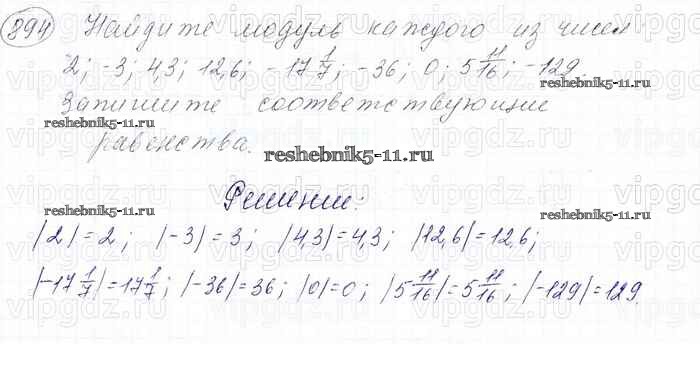 894 Найдите модуль каждого из чисел
2; -3; 4,3; 12,6; -17 1/7; -36; 0; 5 11/16; -129.
Запишите соответствующие
равенства.
reshebnik5-11.ru
reshebnik5-11.ru
reshebnik5-11.ru
Решение:
reshebnik5-11.ru
|2|=2; |-3|=3; |4,3|=4,3; |12,6|=12,6;
|-17 1/7|=17 1/7; |-36|=36; |0|=0; |5 11/16|=5 11/16; |-129|=129.